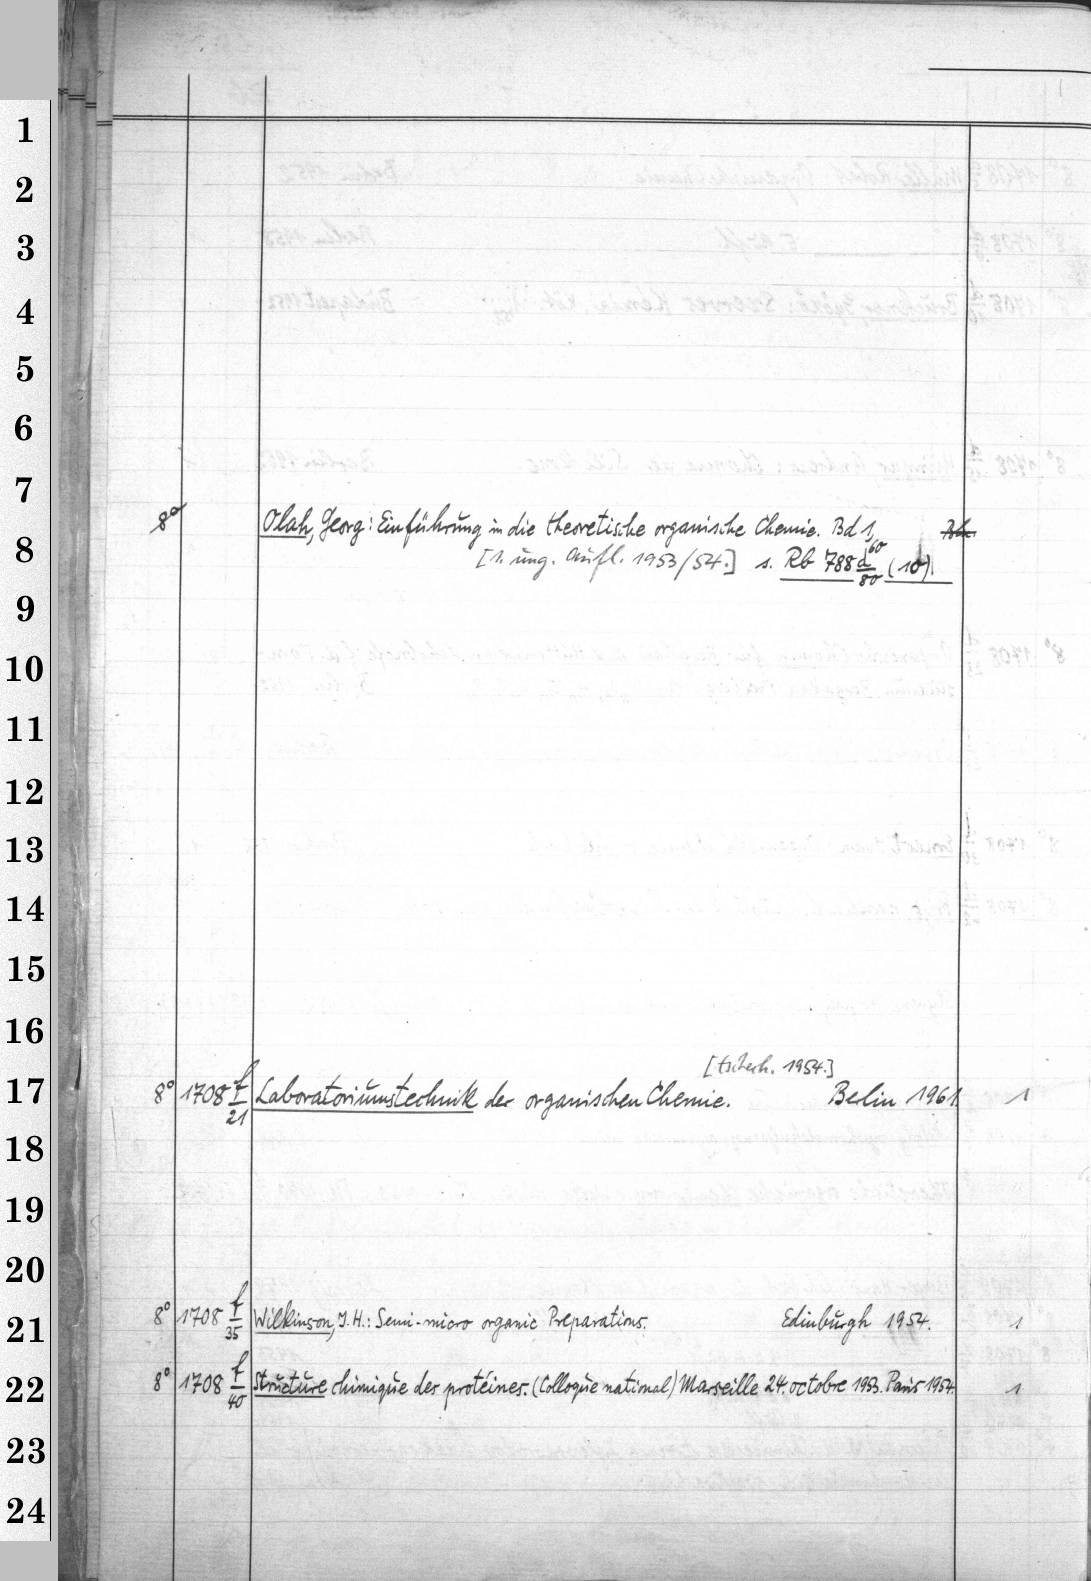 1
2
3
4
5
6
7
8° Olah, Georg: Einführung in die theoretische organische Chemie. Bd 1,
8
[1. ung. Aufl. 1953/54.] s. Rb 788 d 60/80 (10).
9
10
11
12
13
14
15
16
[tschech. 1954.]
17
8° 1708 f/21 Laboratoriumstechnik der organischen Chemie. Berlin 1961. 1
18
19
20
21
8° 1708 f/35 Wilkinson, J. H.: Semi-micro organic Preparations. Edinburgh 1954. 1
22
8° 1708 f/40 Structure chimique des protéines. (Colloque national) Marseille 24. octobre 1953. Paris 1954. 1
23
24